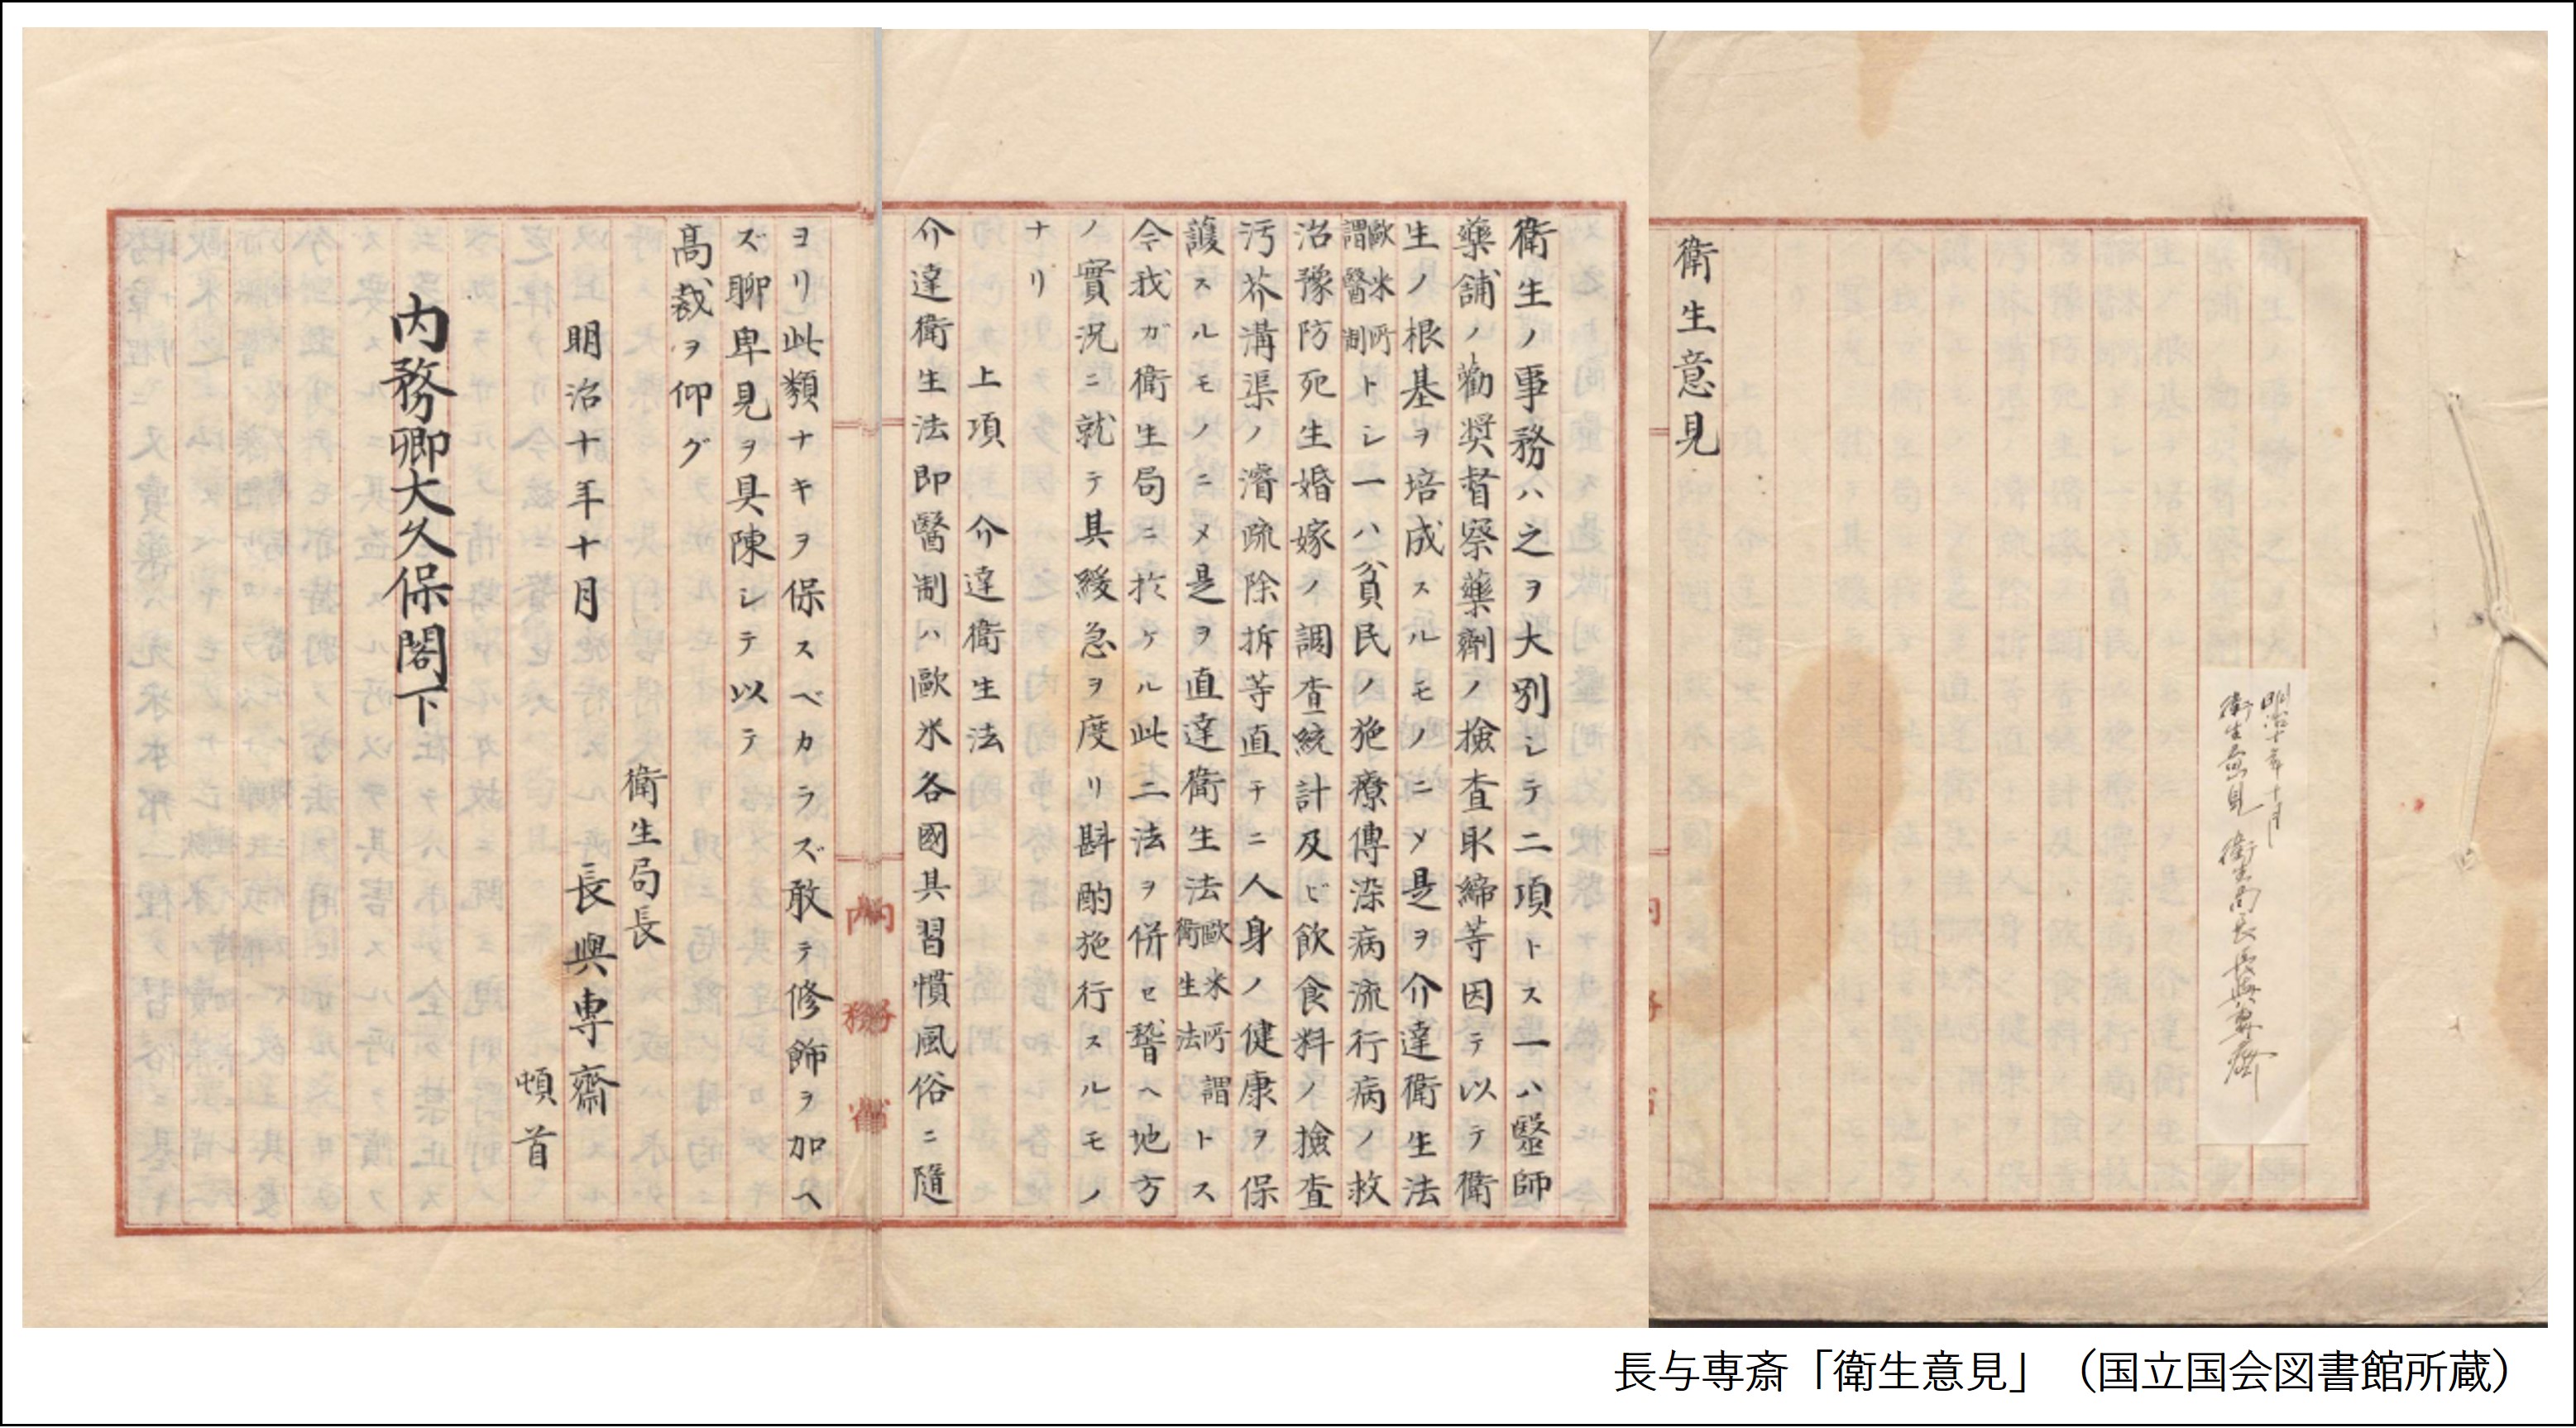 明治十年十月
衛生意見 衛生局長長與專齋
衛生意見
衛生ノ事務ハ之ヲ大別シテ二項トス一ハ醫師
藥舗ノ勸奨督察藥劑ノ撿査取締等因テ以テ衛
生ノ根基ヲ培成スルモノニメ是ヲ介達衛生法
歐米所謂醫制トシ一ハ貧民ノ施療傳染病流行病ノ救
治豫防死生婚嫁ノ調査統計及ビ飲食料ノ撿査
汚芥溝渠ノ濬疏除拆等直チニ人身ノ健康ヲ保
護スルモノニメ是ヲ直達衛生法歐米所謂衛生法トス
今我ガ衛生局ニ於ケル此二法ヲ併セ督ヘ地方
ノ實況ニ就テ其緩急ヲ度リ斟酌施行スルモノ
ナリ
上項 介達衛生法
介達衛生法即醫制ハ歐米各國其習慣風俗ニ隨
ヨリ此類ナキヲ保スベカラズ敢テ修飾ヲ加ヘ
ズ聊卑見ヲ具陳シテ以テ
高裁ヲ仰グ
衛生局長
明治十年十月 長與専齋
頓首
内務卿大久保閣下
内務省
長与専斎「衛生意見」（国立国会図書館所蔵）